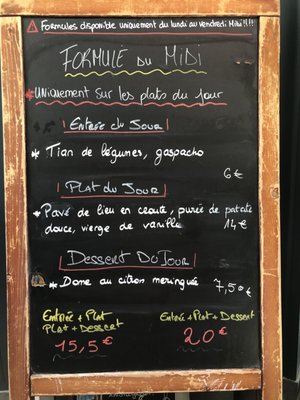 ⚠ Formules disponible uniquement du lundi au vendredi Midi !!!
Formule du Midi
*Uniquement sur les plats du jour
Entrée du Jour
* Tian de légumes, gaspacho
6€
Plat du Jour
* Pavé de lieu en croute, purée de patate
douce, vierge de vanille 14€
Dessert Du Jour
* Dome au citron meringuée 7,50€
Entrée + Plat
Plat + Dessert
15,5€
Entrée + Plat + Dessert
20€